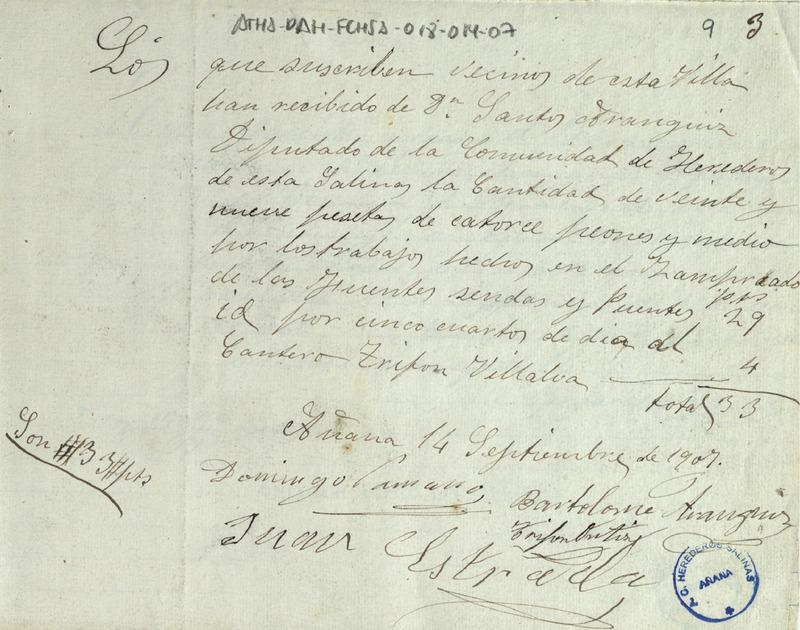 ATHA-DAH-FCHSA-018-014-07
9 3
Los que suscriben vecinos de esta Villa
han recibido de Dn Santos Aranguiz
Diputado de la Comunidad de Herederos
de esta Salinas la Cantidad de veinte y
nueve pesetas de catorce peones y medio
por los trabajos hechos en el
de las Fuentes sendas y Puentes pts 29
id por cinco cuartos de dia del
Cantero Trifon Villalva 4
total 33
Son #33#pts
Añana 14 Septiembre de 1907.
Domingo Bartolome Aranguiz
Trifon Ortiz
Juan Estrada
T. C. HEREDEROS SALINAS
AÑANA